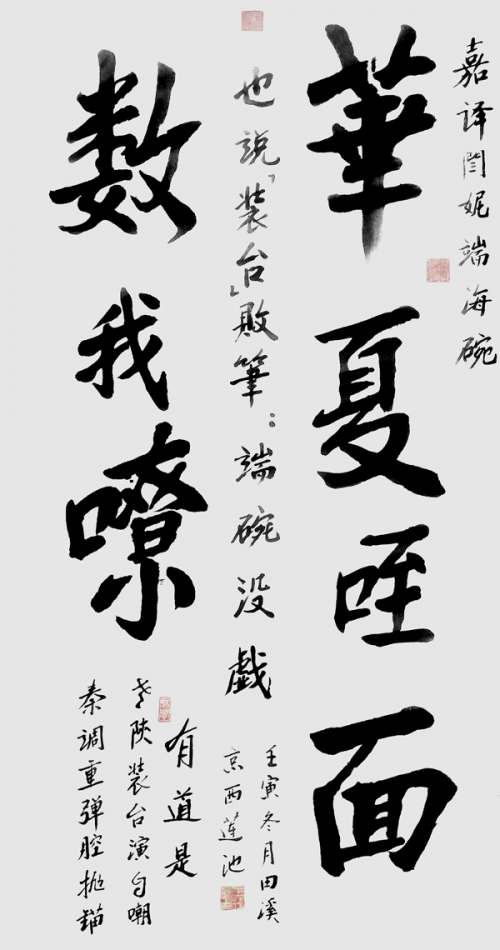 嘉译闫妮端海碗
華夏咥面
也説「装台」敗筆：端碗没戲
数我嘹
壬寅冬月田溪
京西莲池
有道是
老陕装台演自嘲
秦调重弹腔抛锚